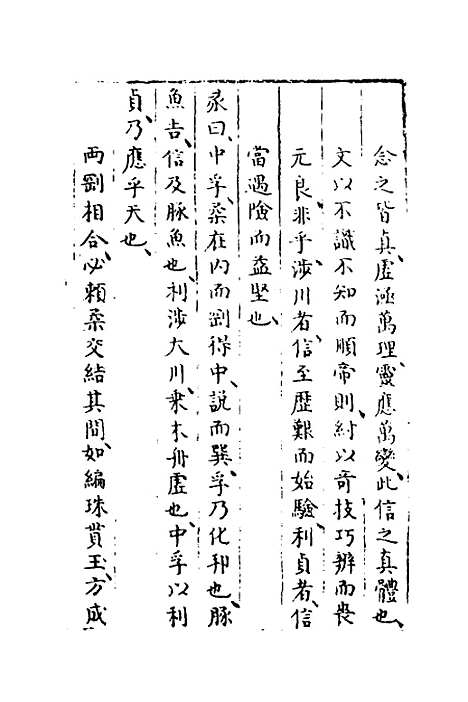 念之皆真、虛涵萬理、靈應萬變、此信之真體也、
文以不識不知而順帝則、紂以奇技巧辨而喪
元良、非乎、涉川者、信至歷艱而始驗、利貞者、信
當遇險而益堅也、
彖曰、中孚、柔在內而剛得中、說而巽、孚乃化邦也、豚
魚吉、信及豚魚也、利涉大川、乘木舟虛也、中孚以利
貞、乃應乎天也、
兩剛相合、必賴柔交結其間、如編珠貫玉、方成